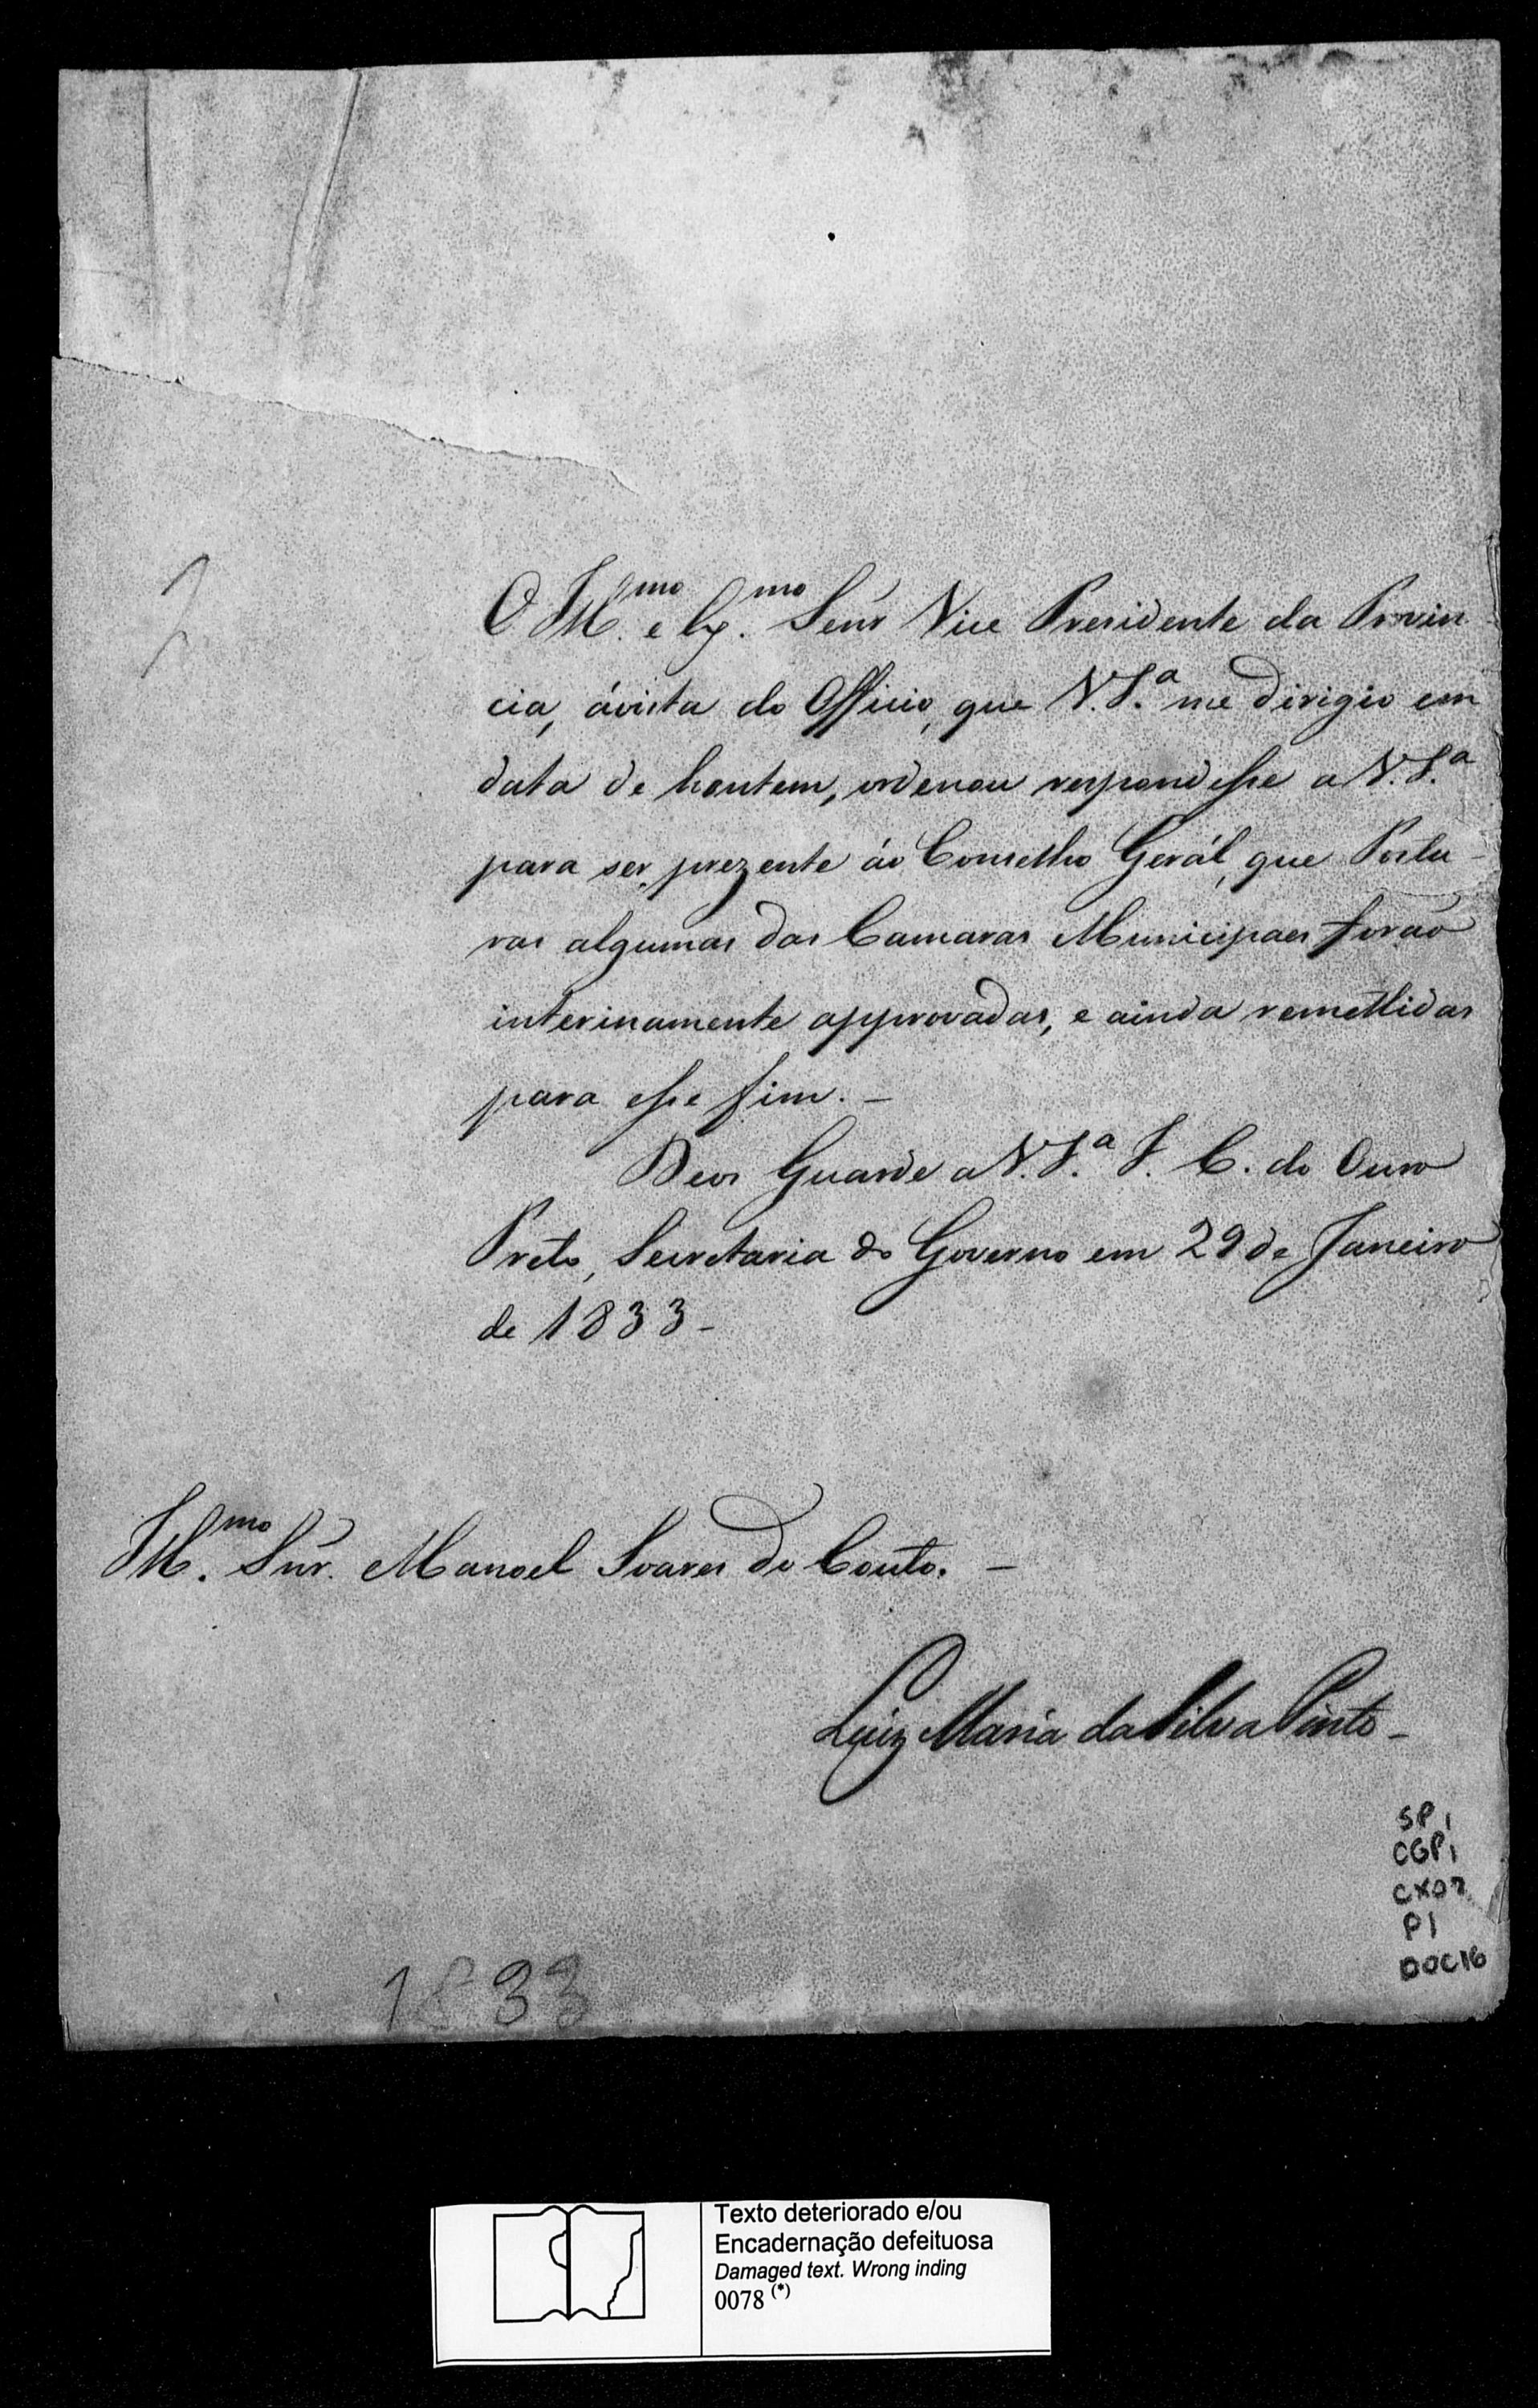 O Ill.mo e Ex.mo Senr Vice Presidente da Provin-
cia, ávista do Officio, que V. S.a me dirigio em
data de hontem, ordenou respondesse a V. S.a
para ser prezente áo Conselho Gerál, que Postu-
ras algumas das Camaras Municipaes forão
interinamente approvadas, e ainda remettidas
para esse fim. -
Deos Guarde a V. S.a I. C. do Ouro
Preto, Secretaria do Governo em 29 de Janeiro
de 1833 -
Ill.mo Snr. Manoel Soares do Couto. -
Luiz Maria da Silva Pinto -
SP 1
CGP1
CX07
P1
DOC16
1833
Texto deteriorado e/ou
Encadernação defeituosa
Damaged text. Wrong inding
0078 (*)